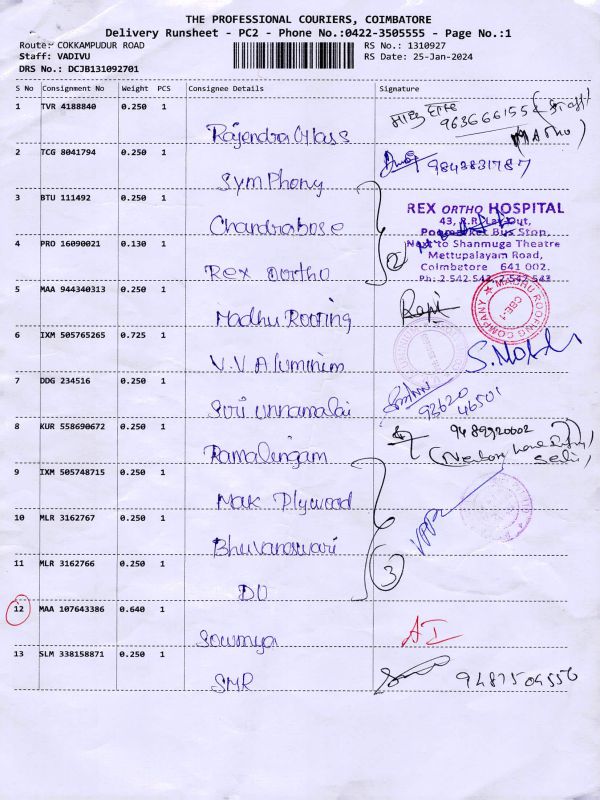 THE PROFESSIONAL COURIERS, COIMBATORE
Delivery Runsheet - PC2 - Phone No.:0422-3505555 - Page No.:1
Route: COKKAMPUDUR ROAD RS No.: 1310927
Staff: VADIVU RS Date: 25-Jan-2024
DRS No.: DCJB131092701
S No Consignment No Weight PCS Consignee Details Signature
1 TVR 4188840 0.250 1
Rajendra Glass 9636661554 (Staff
2 TCG 8041794 0.250 1
Symphony 9843831787
3 BTU 111492 0.250 1
Chandrabose
REX ORTHO HOSPITAL
43, R.R. Lay Out,
Poomarket Bus Stop,
Next to Shanmuga Theatre
Mettupalayam Road,
Coimbatore 641 002.
Ph: 2 542 543, 2 542 543
4 PRO 16090021 0.130 1
Rex Oortho 2
5 MAA 944340313 0.250 1
Madhu Rooring Ravi
MADHU ROOFING COMPANY
CBE-1
6 IXM 505765265 0.725 1
V.V Aluminim
7 DDG 234516 0.250 1
Siri unnamalai 92620
46501
8 KUR 558690672 0.250 1
Ramalingam 9489920602
9 IXM 505748715 0.250 1
Mak Plywood
10 MLR 3162767 0.250 1
Bhuvaneswari
11 MLR 3162766 0.250 1
DO 3
12 MAA 107643386 0.640 1
Sowmya AI
13 SLM 338158871 0.250 1
SMR 9487504556